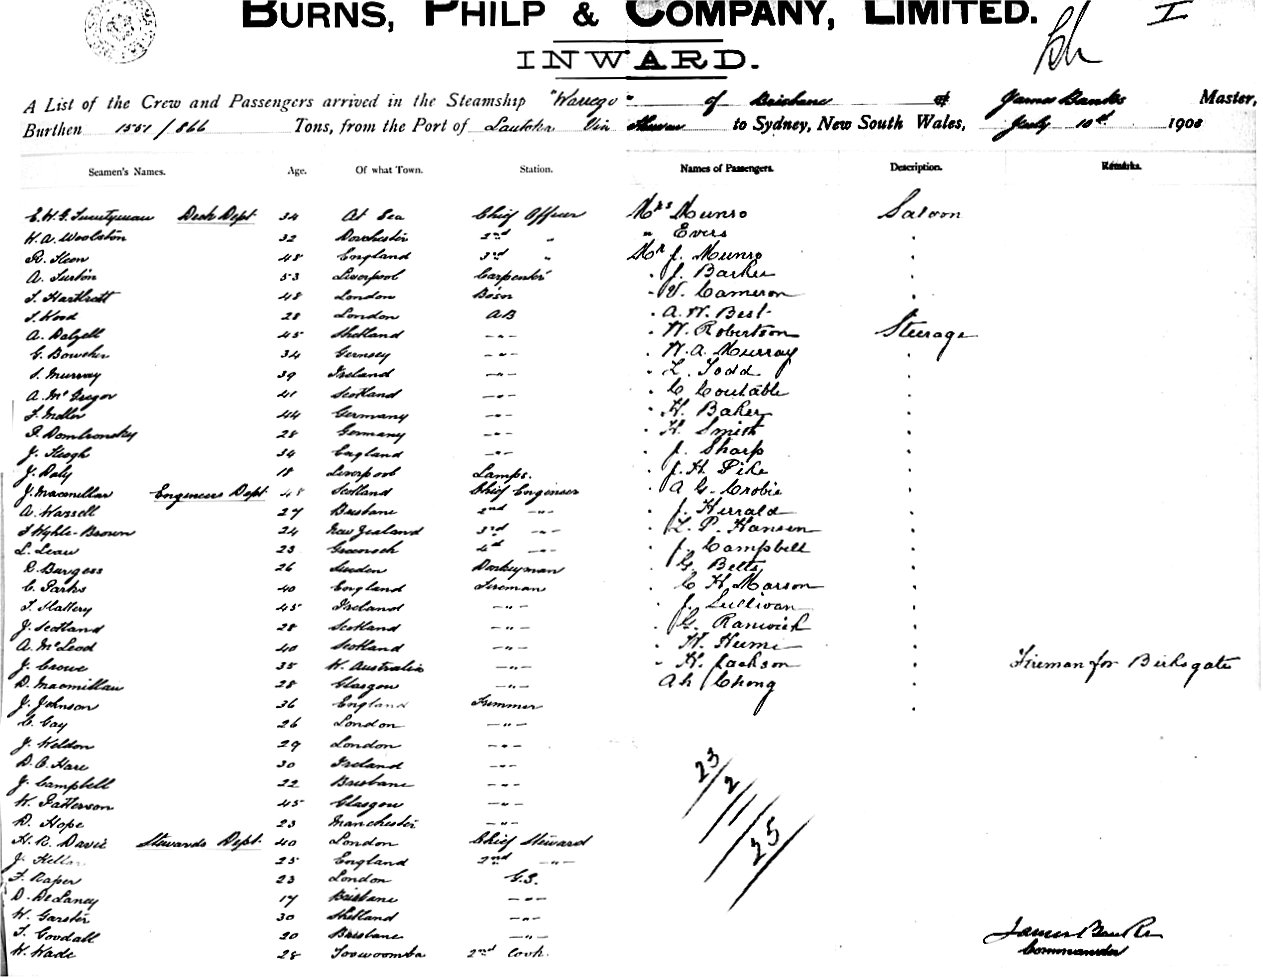 BURNS, PHILP & COMPANY, LIMITED. I
INWARD.
A List of the Crew and Passengers arrived in the Steamship "Warrego" of Brisbane James Banks Master,
Burthen 1551/866 Tons, from the Port of Lautoka Via to Sydney, New South Wales, July 10th 1908
Seamen's Names. Age. Of what Town. Station. Names of Passengers. Description. Remarks.
E.W.G. Twentyman Deck Dept 34 At Sea Chief Officer Mrs Munro Saloon
W.A. Woolston 32 Dorchester 2nd " " Evers "
R. Keen 48 England 3rd " Mr J. Munro "
A. 53 Liverpool Carpenter " J. Barker "
T. 48 London Bosn " V. Cameron "
T. Wood 28 London AB " A.W. Best
A. Dalzell 45 Shetland -"- " W. Robertson Steerage
G. 34 Gernsey -"- " W.A. Murray "
S. Murray 39 Ireland -"- " L. Todd "
A. McGregor 41 Scotland -"- " C Coutable "
44 Germany -"- " H. Baker "
28 Germany -"- " H. Smith "
J. Keogh 34 England -"- " J. Sharp "
J. Daly 18 Liverpool Lamps. " J.H. Pike "
J. Macmillan Engineers Dept 48 Scotland Chief Engineer " A G. Crobie "
A. Wassell 27 Brisbane 2nd -"- " J. Herrald "
Wyhle-Brown 24 New Zealand 3rd -"- " L.P. Hansen "
L. Lean 23 Greenock 4th -"- " J. Campbell "
R. Burgess 26 Donkeyman " G. Betts "
C. Parks 40 England Fireman " C H. Marson "
T. Slattery 45 Ireland -"- " J. Sullivan "
J. Scotland 28 Scotland -"- " G. Ranwick "
A. McLeod 40 Scotland -"- " W. Hume "
J. Crowe 35 W. Australia -"- " H. Jackson " Fireman for Birksgate
D. Macmillan 28 Glasgow -"- Ah Chong "
J. Johnson 36 England Trimmer "
C. Gay 26 London -"-
J. Weldon 29 London -"-
D.C. Hare 30 Ireland -"- 23/
J. Campbell 22 Brisbane -"- 2/
W. Patterson 45 Glasgow -"- 11/
D. Hope 23 Manchester -"- 25/
H.R. Davie Stewards Dept. 40 London Chief Steward
J. 25 England 2nd -"-
F. Raper 23 London G.S.
D. DeLaney 17 Brisbane -"-
W. Garster 30 Shetland -"-
T. Goodall 20 Brisbane -"- James Banks
W. Wade 28 Toowoomba 2nd Cook. Commander